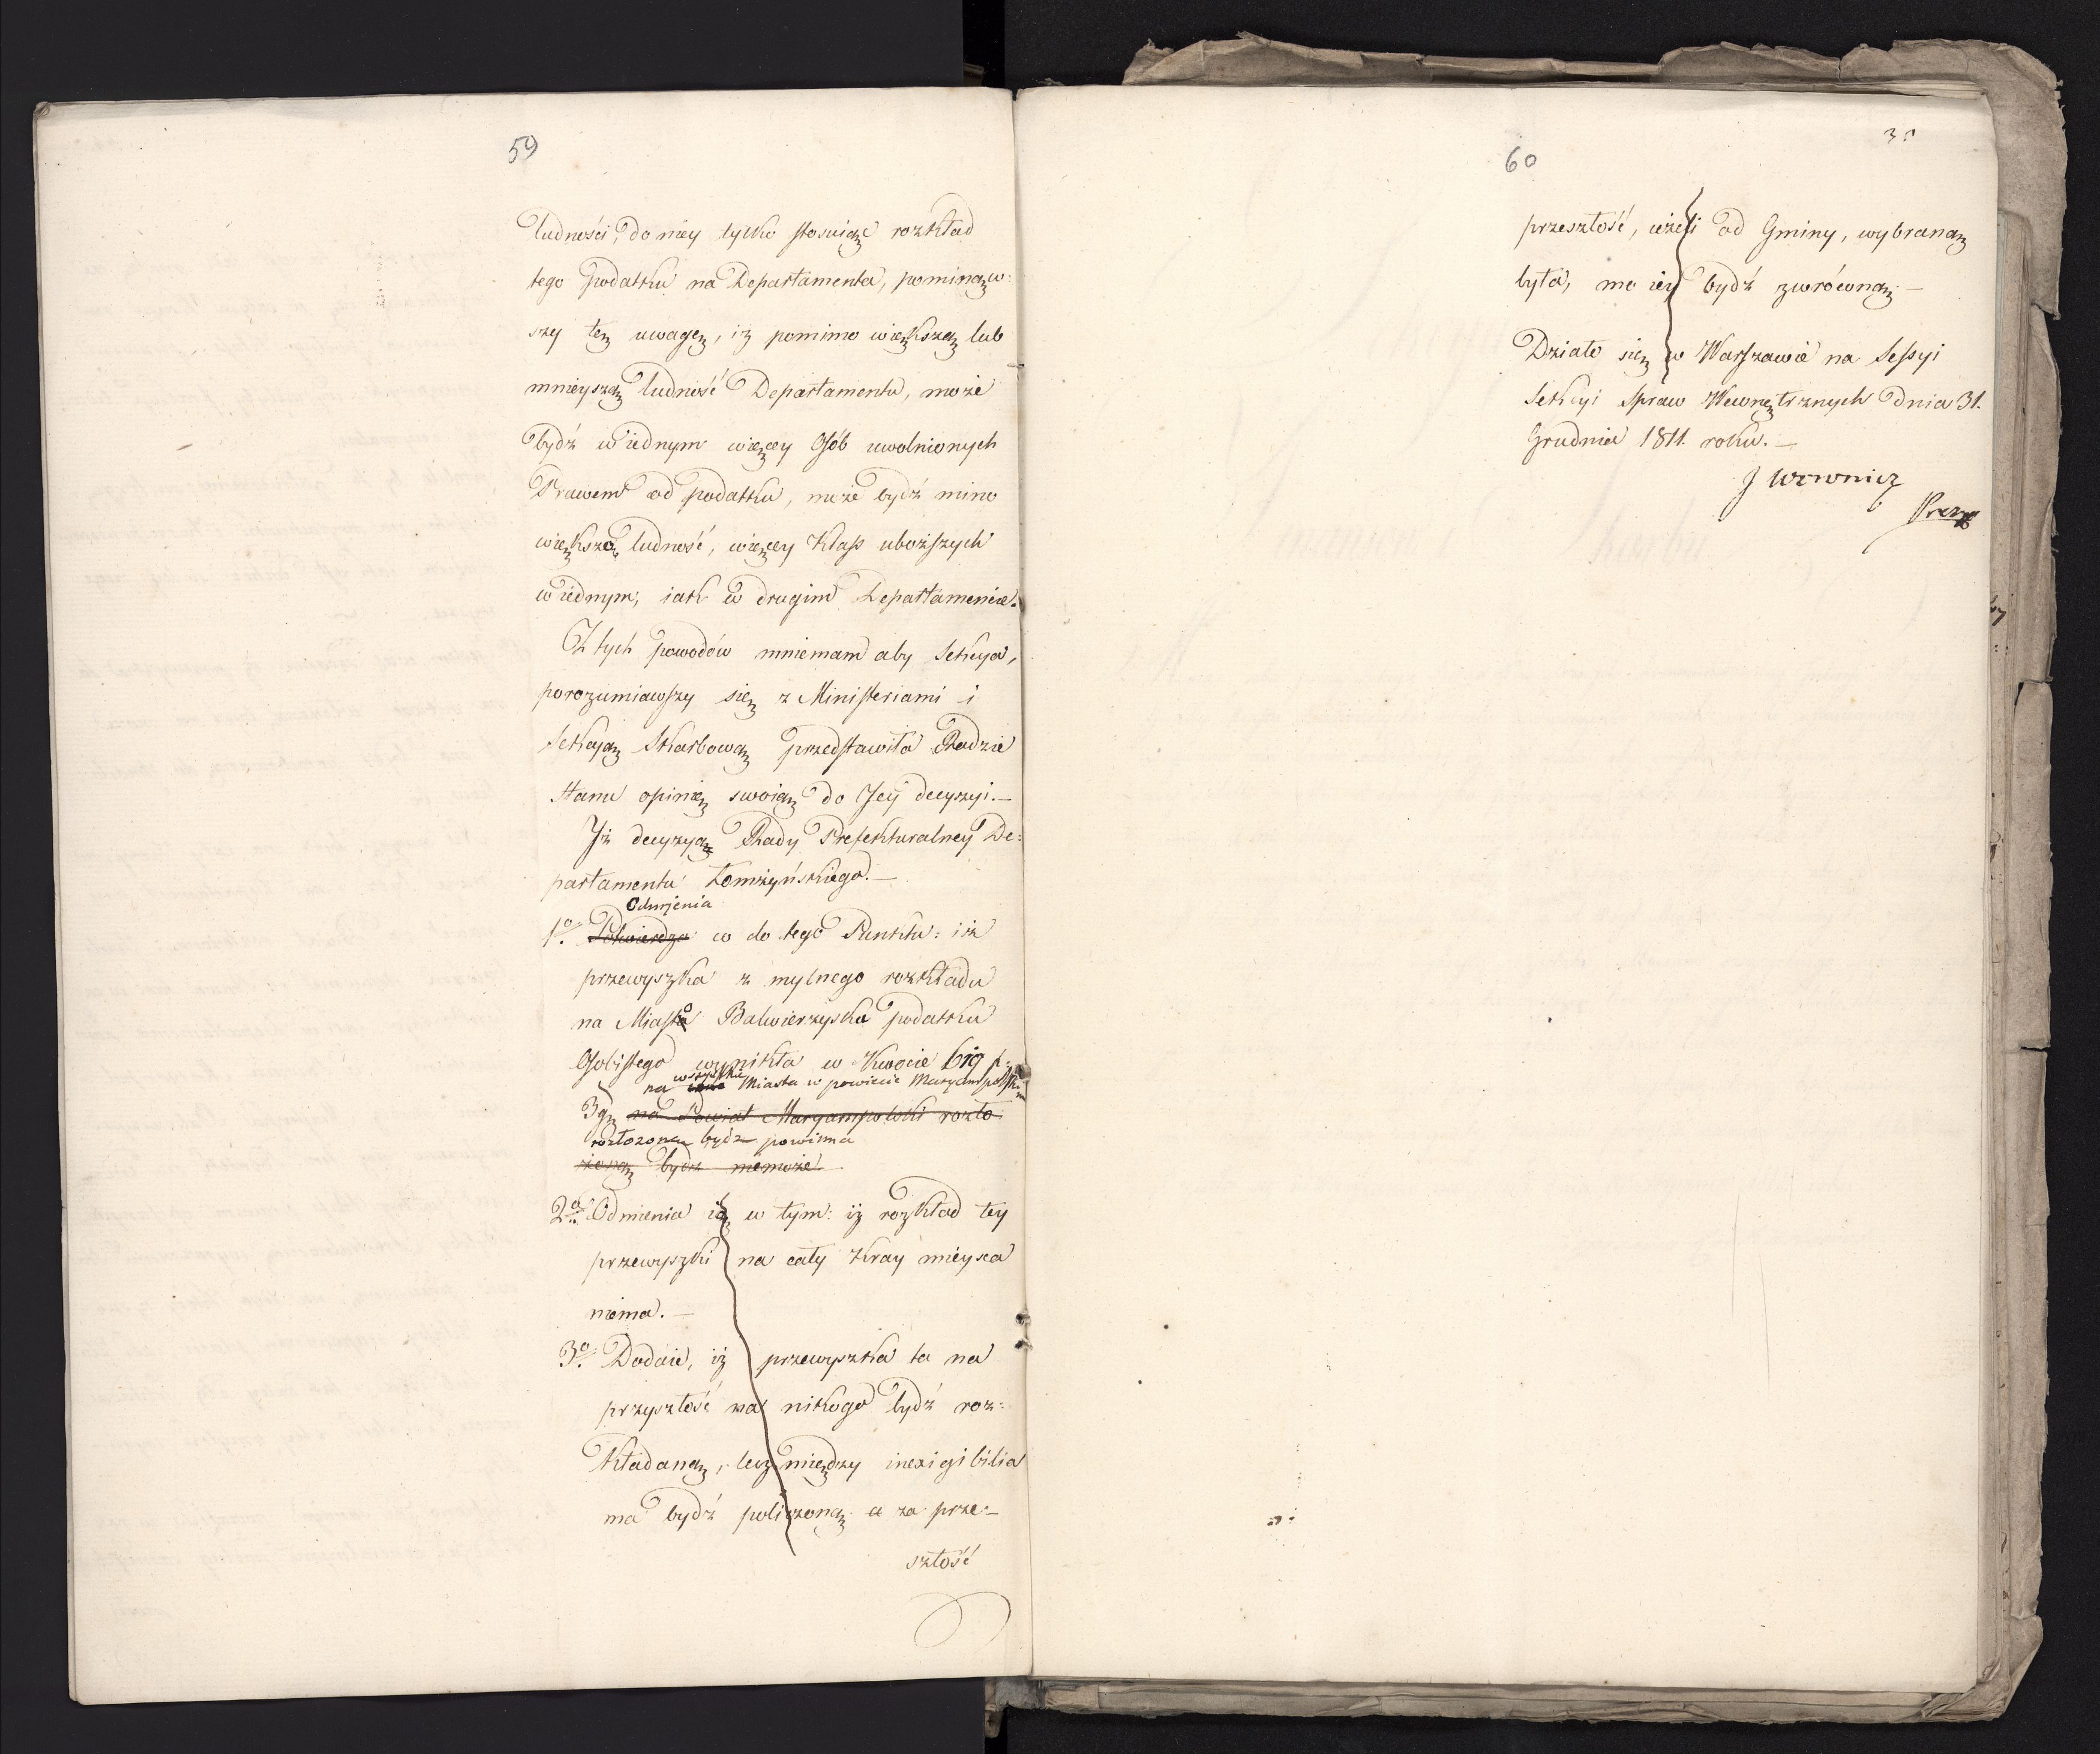 59
ludności, do niey tylko stosuiąc rozkład
tego podatku na Departamenta, pominąw:
szy tę uwagę, iż pomimo większą lub
mnieyszą ludność Departamentu, może
bydź w iednym więcey Osób uwolnionych
Prawem od podatku, może bydź mimo
większą ludność, więcey Klass uboższych
w iednym, iak w drugim Departamencie.
Z tych powodów mniemam aby Sekcya,
porozumiawszy się z Ministeriami i
Sekcyą Skarbową przedstawiła Radzie
Stanu opinię swoią do Jey decyzyi.—
Iż decyzyą Rady Prefekturalney De:
partamentu Łomżyńskiego.—
Odmienia
1o. Potwierdza co do tego Punktu: iż
przewyszka z mylnego rozkładu
na Miasto Balwierzyska podatku
Osobistego wynikła w Kwocie
na wszystkie inne Miasta w powiecie Maryampolskim
na Powiat Maryampolski rozło
rozłożona bydź powinna
żoną bydz niemoże.—
2o. Odmienia ią w tym: iż rozkład tey
przewyszki na cały Kray mieysca
niema.—
3o. Dodaie, iż przewyszka ta na
przyszłość na nikogo bydź roz:
kładaną, lecz między inexigibilia
ma bydź policzoną a za prze-
szłość
60
przeszłość, ieżeli od Gminy, wybraną
była, ma iey bydź zwróconą.—
Działo się w Warszawie na Sessyi
Sekcyi Spraw Wewnętrznych Dnia 31.
Grudnia 1811. roku.—
J Woronicz
Prez